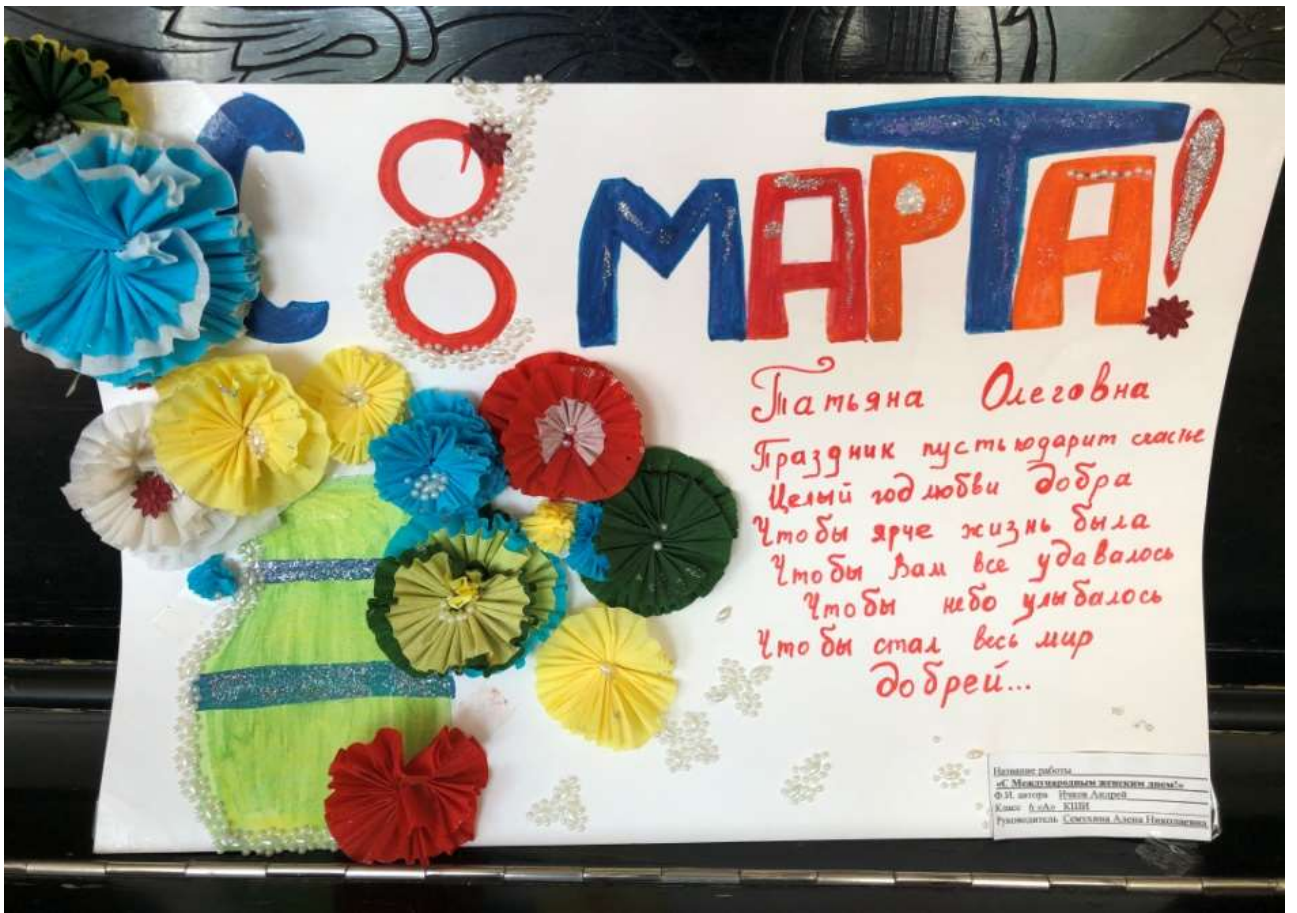 С 8 МАРТА!
Татьяна Олеговна
Праздник пусть подарит счастье
Целый год любви добра
Чтобы ярче жизнь была
Чтобы Вам все удавалось
Чтобы небо улыбалось
Чтобы стал весь мир
добрей...
Название работы
«С Международным женским днем!»
Ф.И. автора Ичков Андрей
Класс 6 «А» КШИ
Руководитель Семухина Алена Николаевна